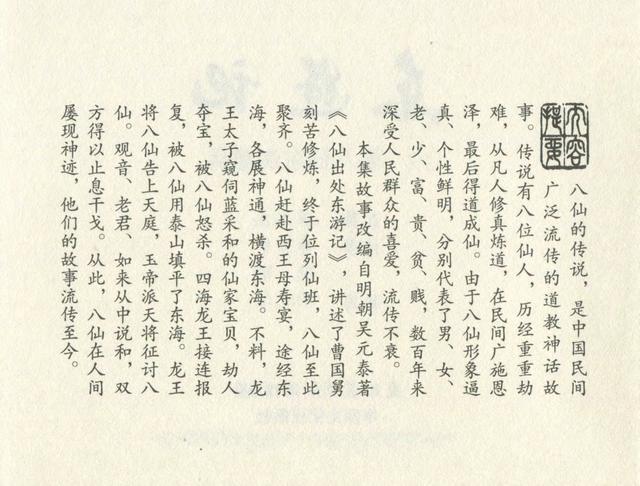 内容提要
八仙的传说，是中国民间
广泛流传的道教神话故
事。传说有八位仙人，历经重重劫
难，从凡人修真炼道，在民间广施恩
泽，最后得道成仙。由于八仙形象逼
真、个性鲜明，分别代表了男、女、
老、少、富、贵、贫、贱，数百年来
深受人民群众的喜爱，流传不衰。
本集故事改编自明朝吴元泰著
《八仙出处东游记》，讲述了曹国舅
刻苦修炼，终于位列仙班，八仙至此
聚齐。八仙赶赴西王母寿宴，途经东
海，各展神通，横渡东海。不料，龙
王太子窥伺蓝采和的仙家宝贝，劫人
夺宝，被八仙怒杀。四海龙王接连报
复，被八仙用泰山填平了东海。龙王
将八仙告上天庭，玉帝派天将征讨八
仙。观音、老君、如来从中说和，双
方得以止息干戈。从此，八仙在人间
屡现神迹，他们的故事流传至今。